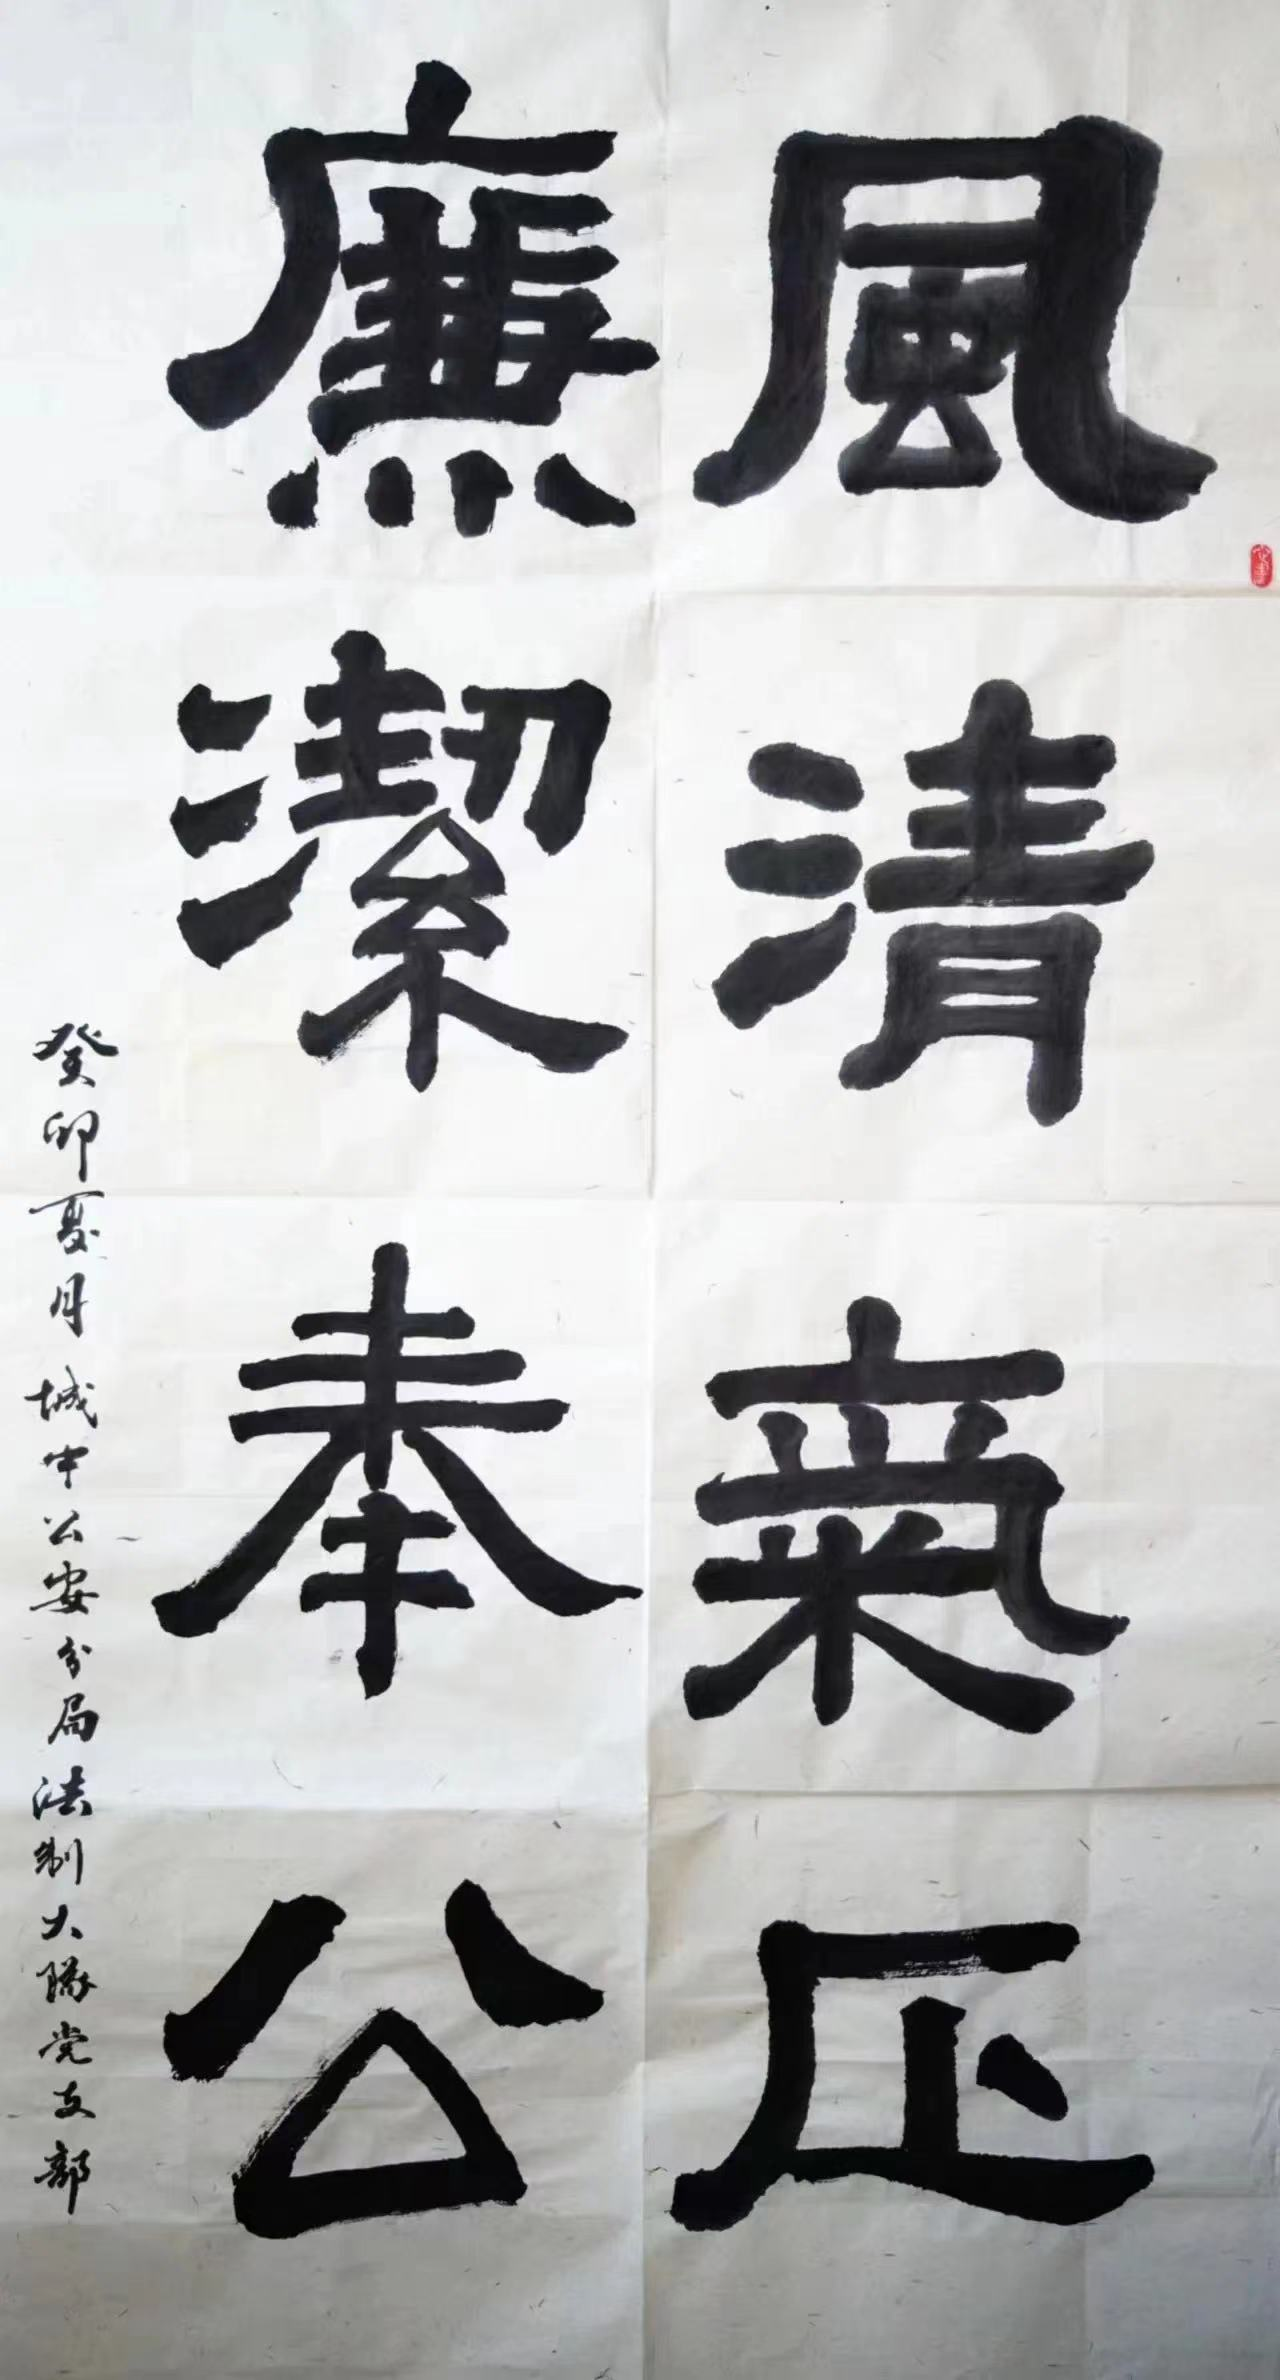 風清氣正
廉潔奉公
癸卯夏月城中公安分局法制大隊党支部